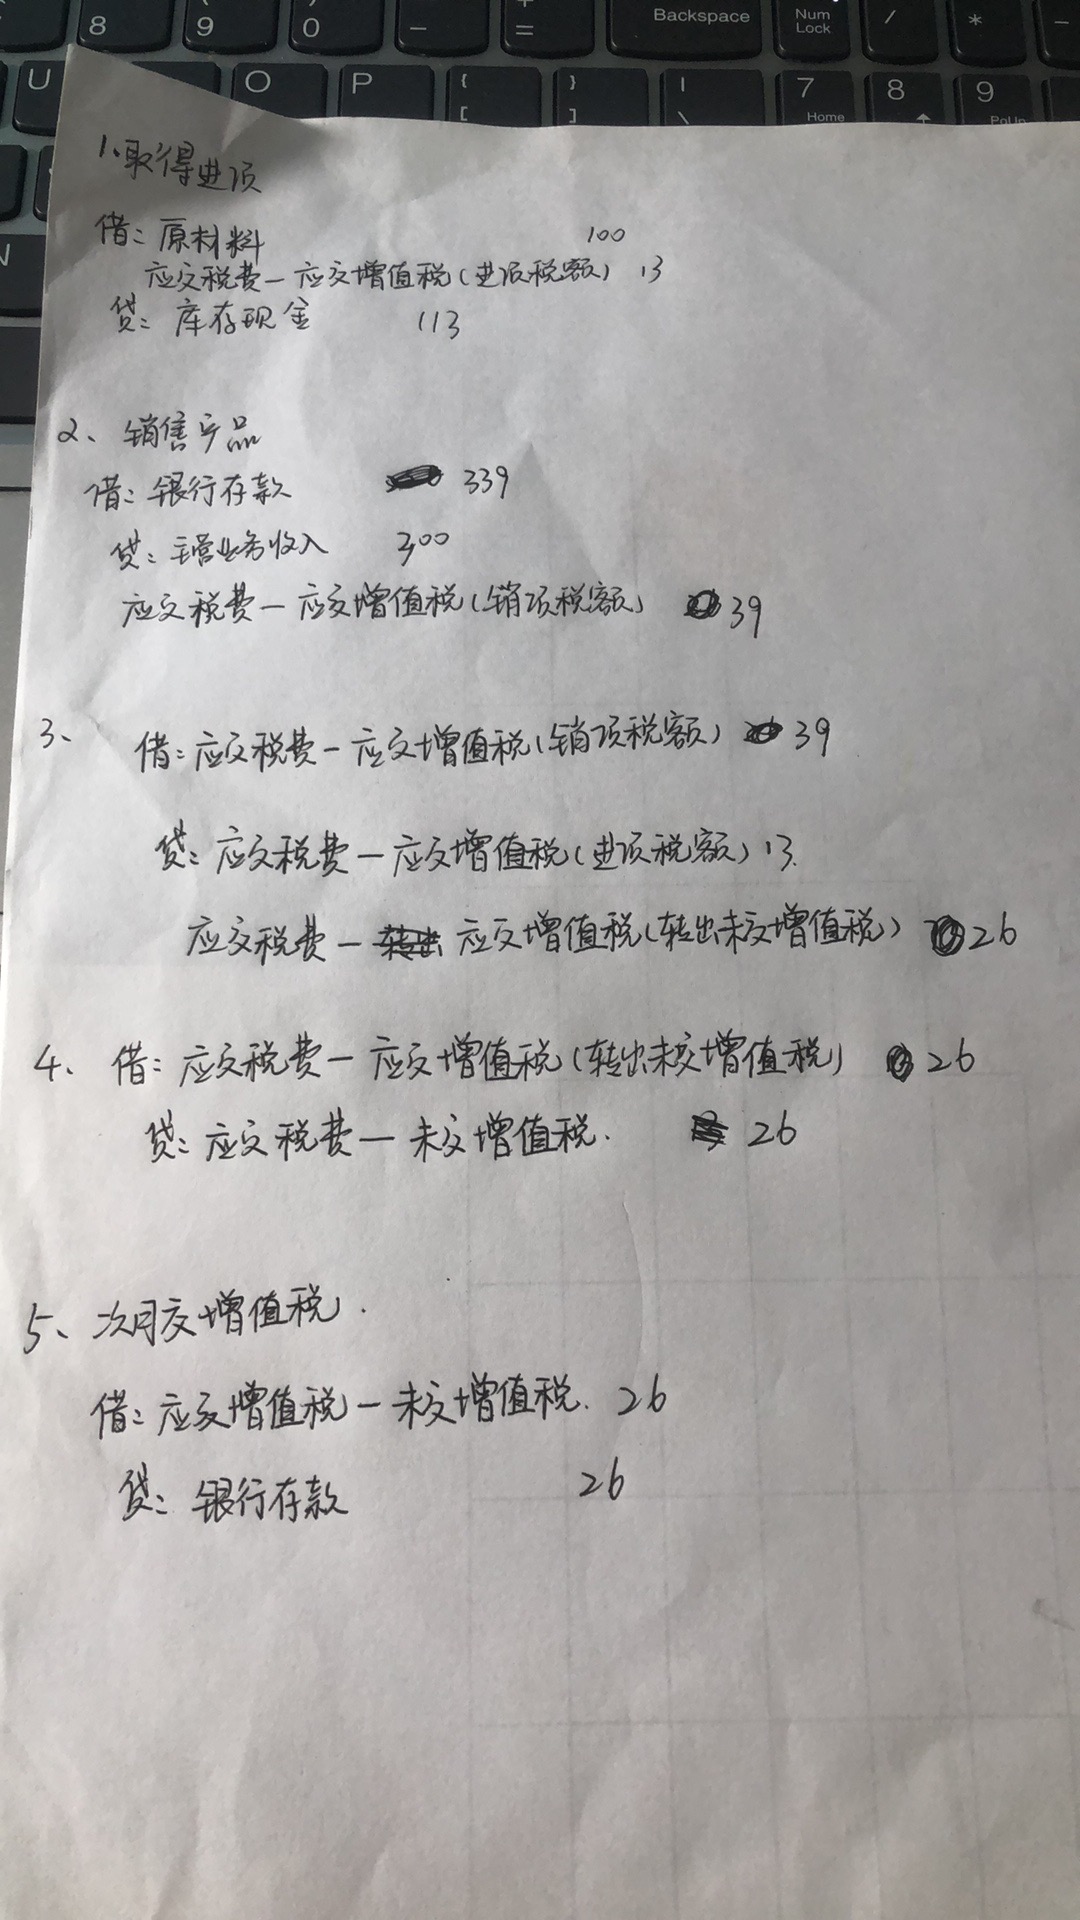 8 9 0 _ + = Backspace Num Lock / * −
U O P { [ } ] | \ 7 Home 8 9 PgUp
1、取得进项
借：原材料 100
应交税费－应交增值税（进项税额） 13
贷：库存现金 113
2、销售产品
借：银行存款 339
贷：主营业务收入 300
应交税费－应交增值税（销项税额） 39
3、借：应交税费－应交增值税（销项税额） 39
贷：应交税费－应交增值税（进项税额）13.
应交税费－转出 应交增值税（转出未交增值税） 26
4、借：应交税费－应交增值税（转出未交增值税） 26
贷：应交税费－未交增值税. 26
5、次月交增值税.
借：应交增值税－未交增值税. 26
贷：银行存款 26